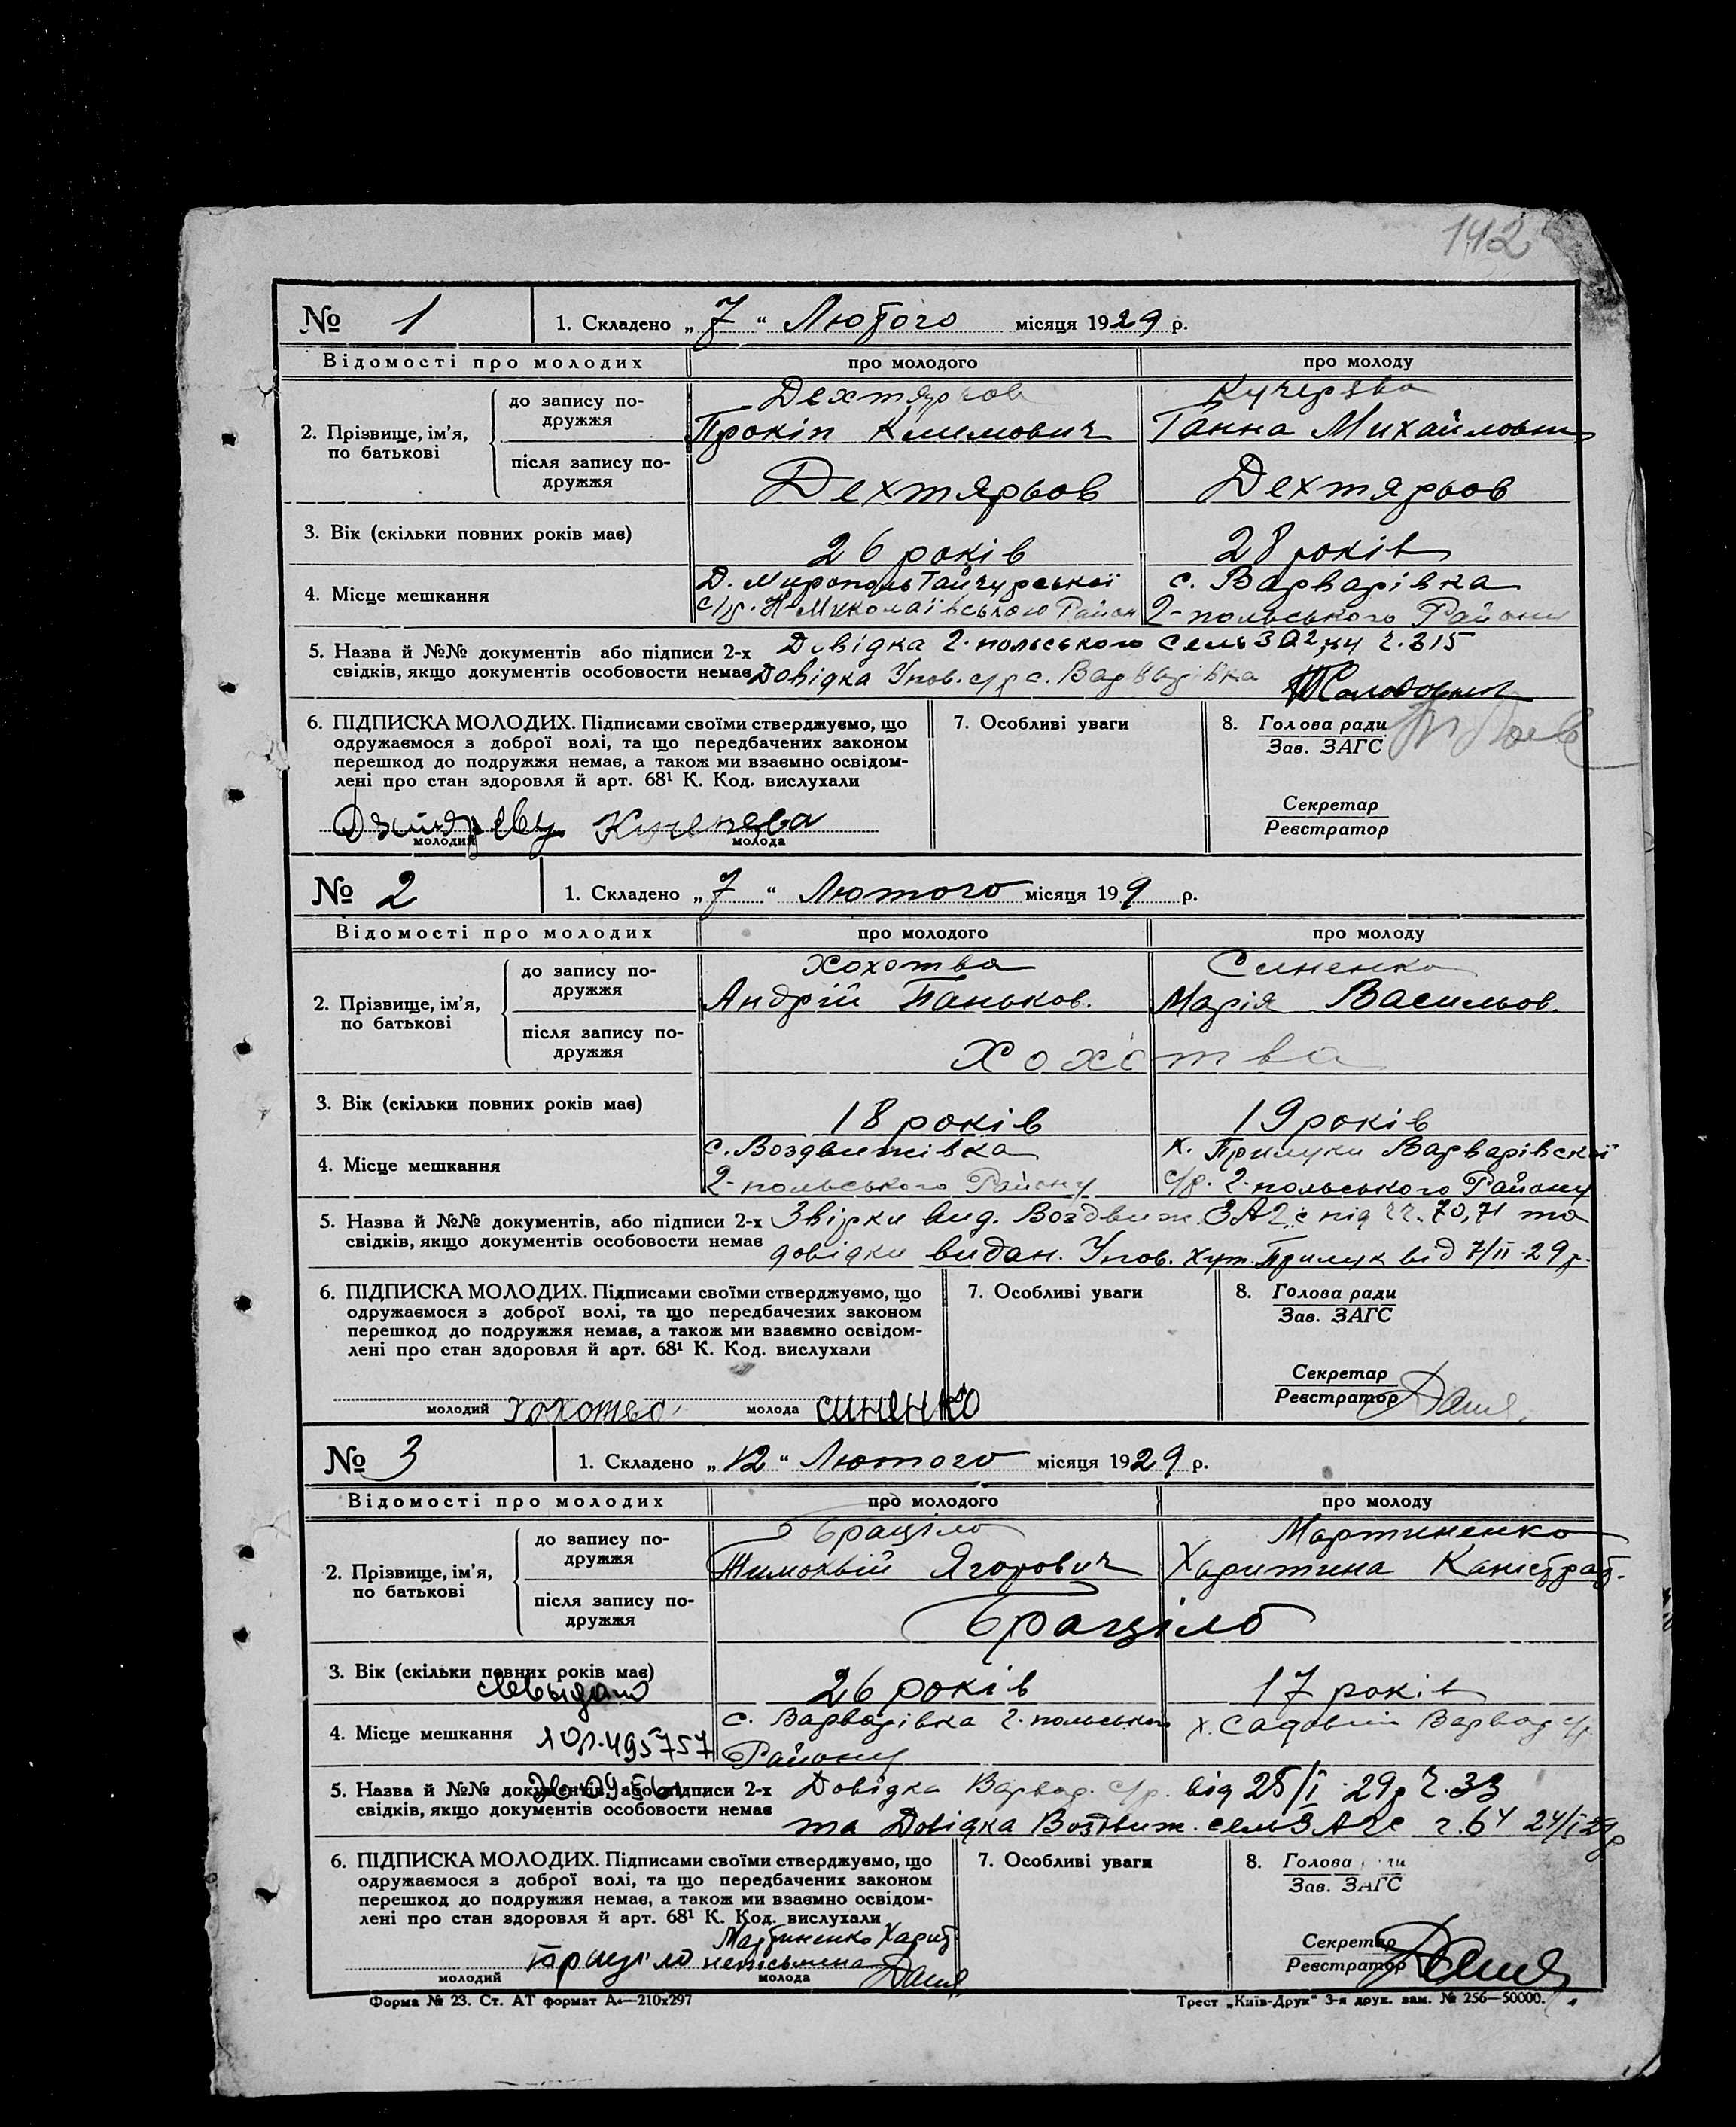 142
№ 1 1. Складено „7“ Лютого місяця 1929 р.
Відомості про молодих про молодого про молоду
2. Прізвище, ім’я, по батькові
до запису подружжя
Дехтярьов Кучерява
Прокіп Климович Ганна Михайловна
після запису подружжя
Дехтярьов Дехтярьов
3. Вік (скільки повних років має) 26 років 28 років
4. Місце мешкання
Д. Мирополь Тайчурської с. Варварівка
с/р. Н-Миколаївського Район 2-польського Району
5. Назва й №№ документів або підписи 2-х Довідка 2-польського сель ЗАГсу ч. 315
свідків, якщо документів особовости немає Довідка Упов. с/р с. Варварівка
6. ПІДПИСКА МОЛОДИХ. Підписами своїми стверджуємо, що 7. Особливі уваги 8. Голова ради
одружаємося з доброї волі, та що передбачених законом Зав. ЗАГС
перешкод до подружжя немає, а також ми взаємно освідом-
лені про стан здоровля й арт. 68¹ К. Код. вислухали
Секретар
Реєстратор
Кучерева
молодий молода
№ 2 1. Складено „7“ Лютого місяця 199 р.
Відомості про молодих про молодого про молоду
2. Прізвище, ім’я, по батькові
до запису подружжя
Хохотва Синенко
Андрій Паньков. Марія Васильов.
після запису подружжя
Хохотва
3. Вік (скільки повних років має) 18 років 19 років
4. Місце мешкання
с. Воздвижівка х. Прилуки Варварівської
2-польського Району с/р. 2-польського Району
5. Назва й №№ документів, або підписи 2-х Звірки вид. Воздвиж. ЗАГС під чч. 70, 71 та
свідків, якщо документів особовости немає довідки видан. Упов. хут. Прилук від 7/II-29 р.
6. ПІДПИСКА МОЛОДИХ. Підписами своїми стверджуємо, що 7. Особливі уваги 8. Голова ради
одружаємося з доброї волі, та що передбачених законом Зав. ЗАГС
перешкод до подружжя немає, а також ми взаємно освідом-
лені про стан здоровля й арт. 68¹ К. Код. вислухали
Секретар
Реєстратор
молодий Хохотва молода синенко
№ 3 1. Складено „12“ Лютого місяця 1929 р.
Відомості про молодих про молодого про молоду
2. Прізвище, ім’я, по батькові
до запису подружжя
Браціло Мартиненко
Тимохвій Ягорович Харитина Каністрат.
після запису подружжя
Браціло
3. Вік (скільки повних років має) 26 років 17 років
4. Місце мешкання
с. Варварівка 2-польського х. Садовий Варвар с/р.
Району
5. Назва й №№ документів, або підписи 2-х Довідка Варвар. с/р. від 25/I-29 р ч. 33
свідків, якщо документів особовости немає та Довідка Воздвиж. сель ЗАГС ч. 64 24/I 29 р
6. ПІДПИСКА МОЛОДИХ. Підписами своїми стверджуємо, що 7. Особливі уваги 8. Голова ради
одружаємося з доброї волі, та що передбачених законом Зав. ЗАГС
перешкод до подружжя немає, а також ми взаємно освідом-
лені про стан здоровля й арт. 68¹ К. Код. вислухали
Мартиненко Харит. Секретар
Браціло неписьмена Реєстратор
молодий молода
Форма № 23. Ст. АТ формат А₄—210х297 Трест „Київ-Друк“ 3-я друк. зам. № 256—50000.